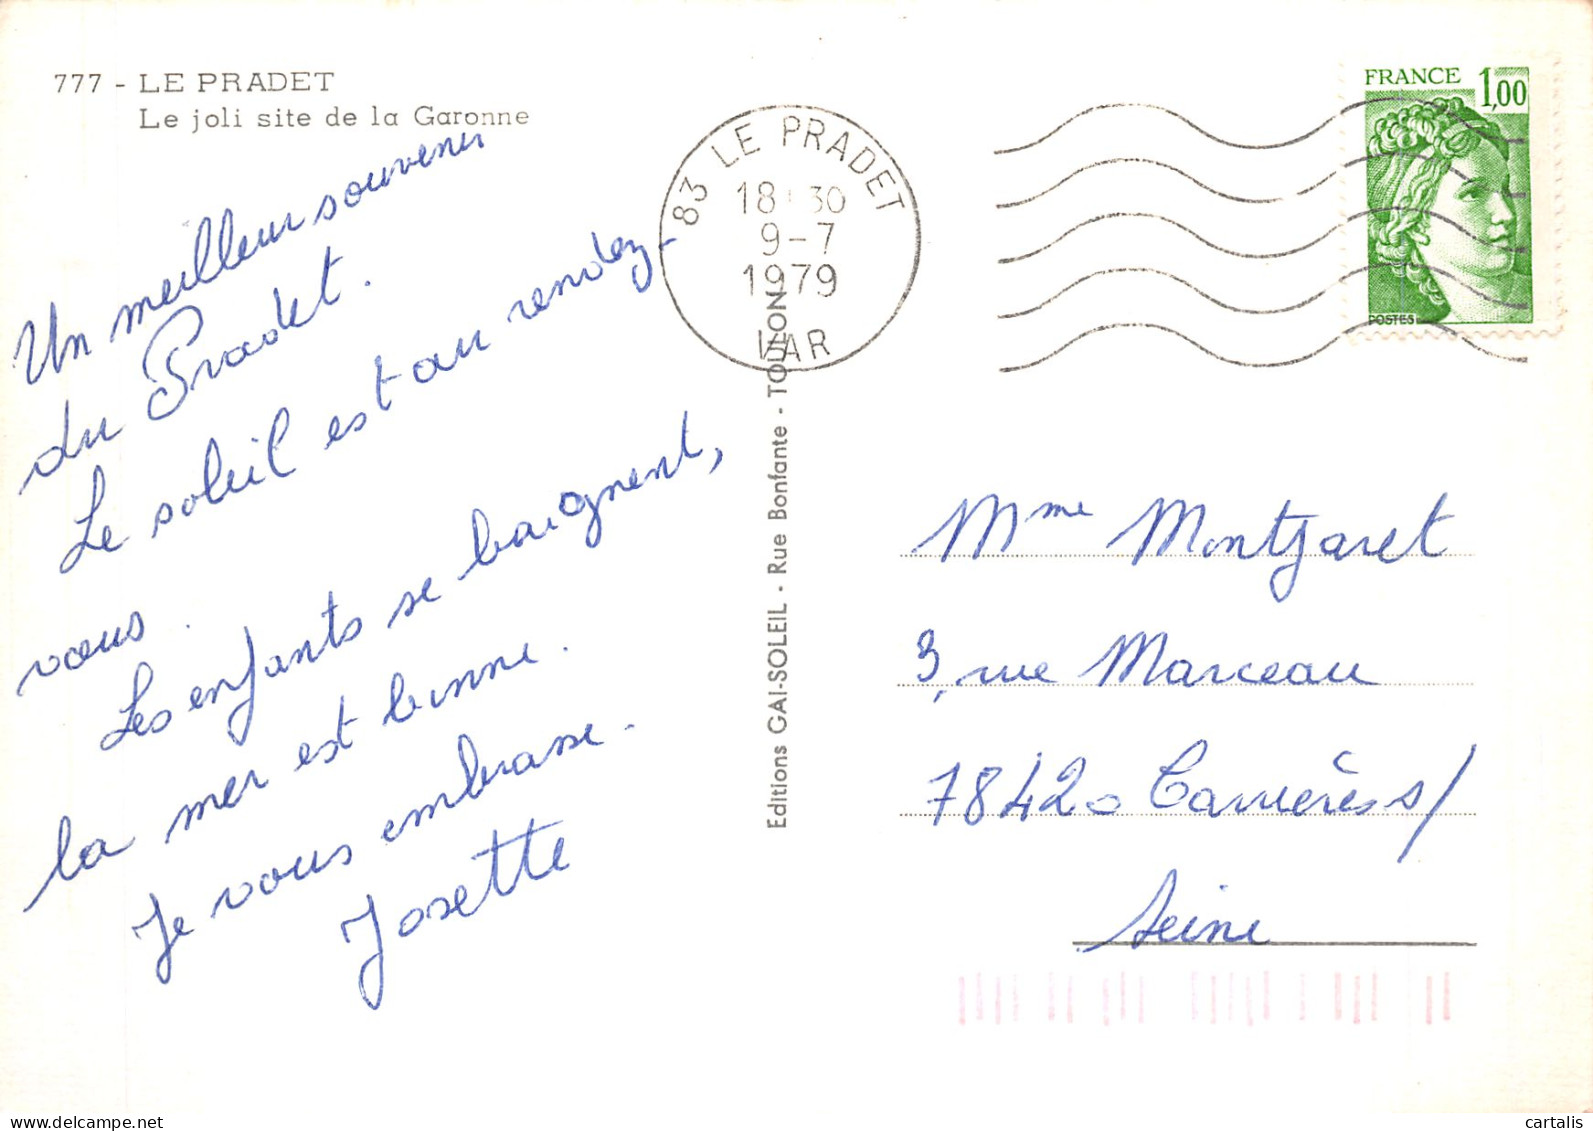 777 - LE PRADET
Le joli site de la Garonne
Un meilleur souvenir
du Pradet.
Le soleil est au rendez-
vous.
Les enfants se baignent,
la mer est bonne.
Je vous embrasse.
Josette
83 LE PRADET
18 30
9-7
1979
VAR
Editions GAI-SOLEIL - Rue Bonfante - TOULON
FRANCE 1,00
POSTES
Mme Montjaret
3, rue Marceau
78420 Carrières s/
Seine
cartalis